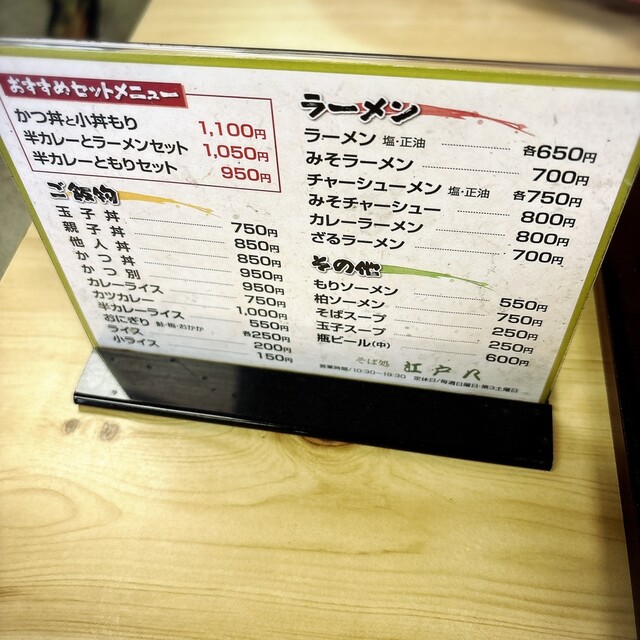 おすすめセットメニュー
かつ丼と小丼もり 1,100円
半カレーとラーメンセット 1,050円
半カレーともりセット 950円
ご飯物
玉子丼 750円
親子丼 850円
他人丼 850円
かつ丼 950円
かつ別 950円
カレーライス 750円
カツカレー 1,000円
半カレーライス 550円
おにぎり 鮭・梅・おかか 各250円
ライス 200円
小ライス 150円
ラーメン
ラーメン 塩・正油 各650円
みそラーメン 700円
チャーシューメン 塩・正油 各750円
みそチャーシュー 800円
カレーラーメン 800円
ざるラーメン 700円
その他
もりソーメン 550円
柏ソーメン 750円
そばスープ 250円
玉子スープ 250円
瓶ビール(中) 600円
そば処 江戸八
営業時間/10:30〜19:30 定休日/毎週日曜日・第3土曜日